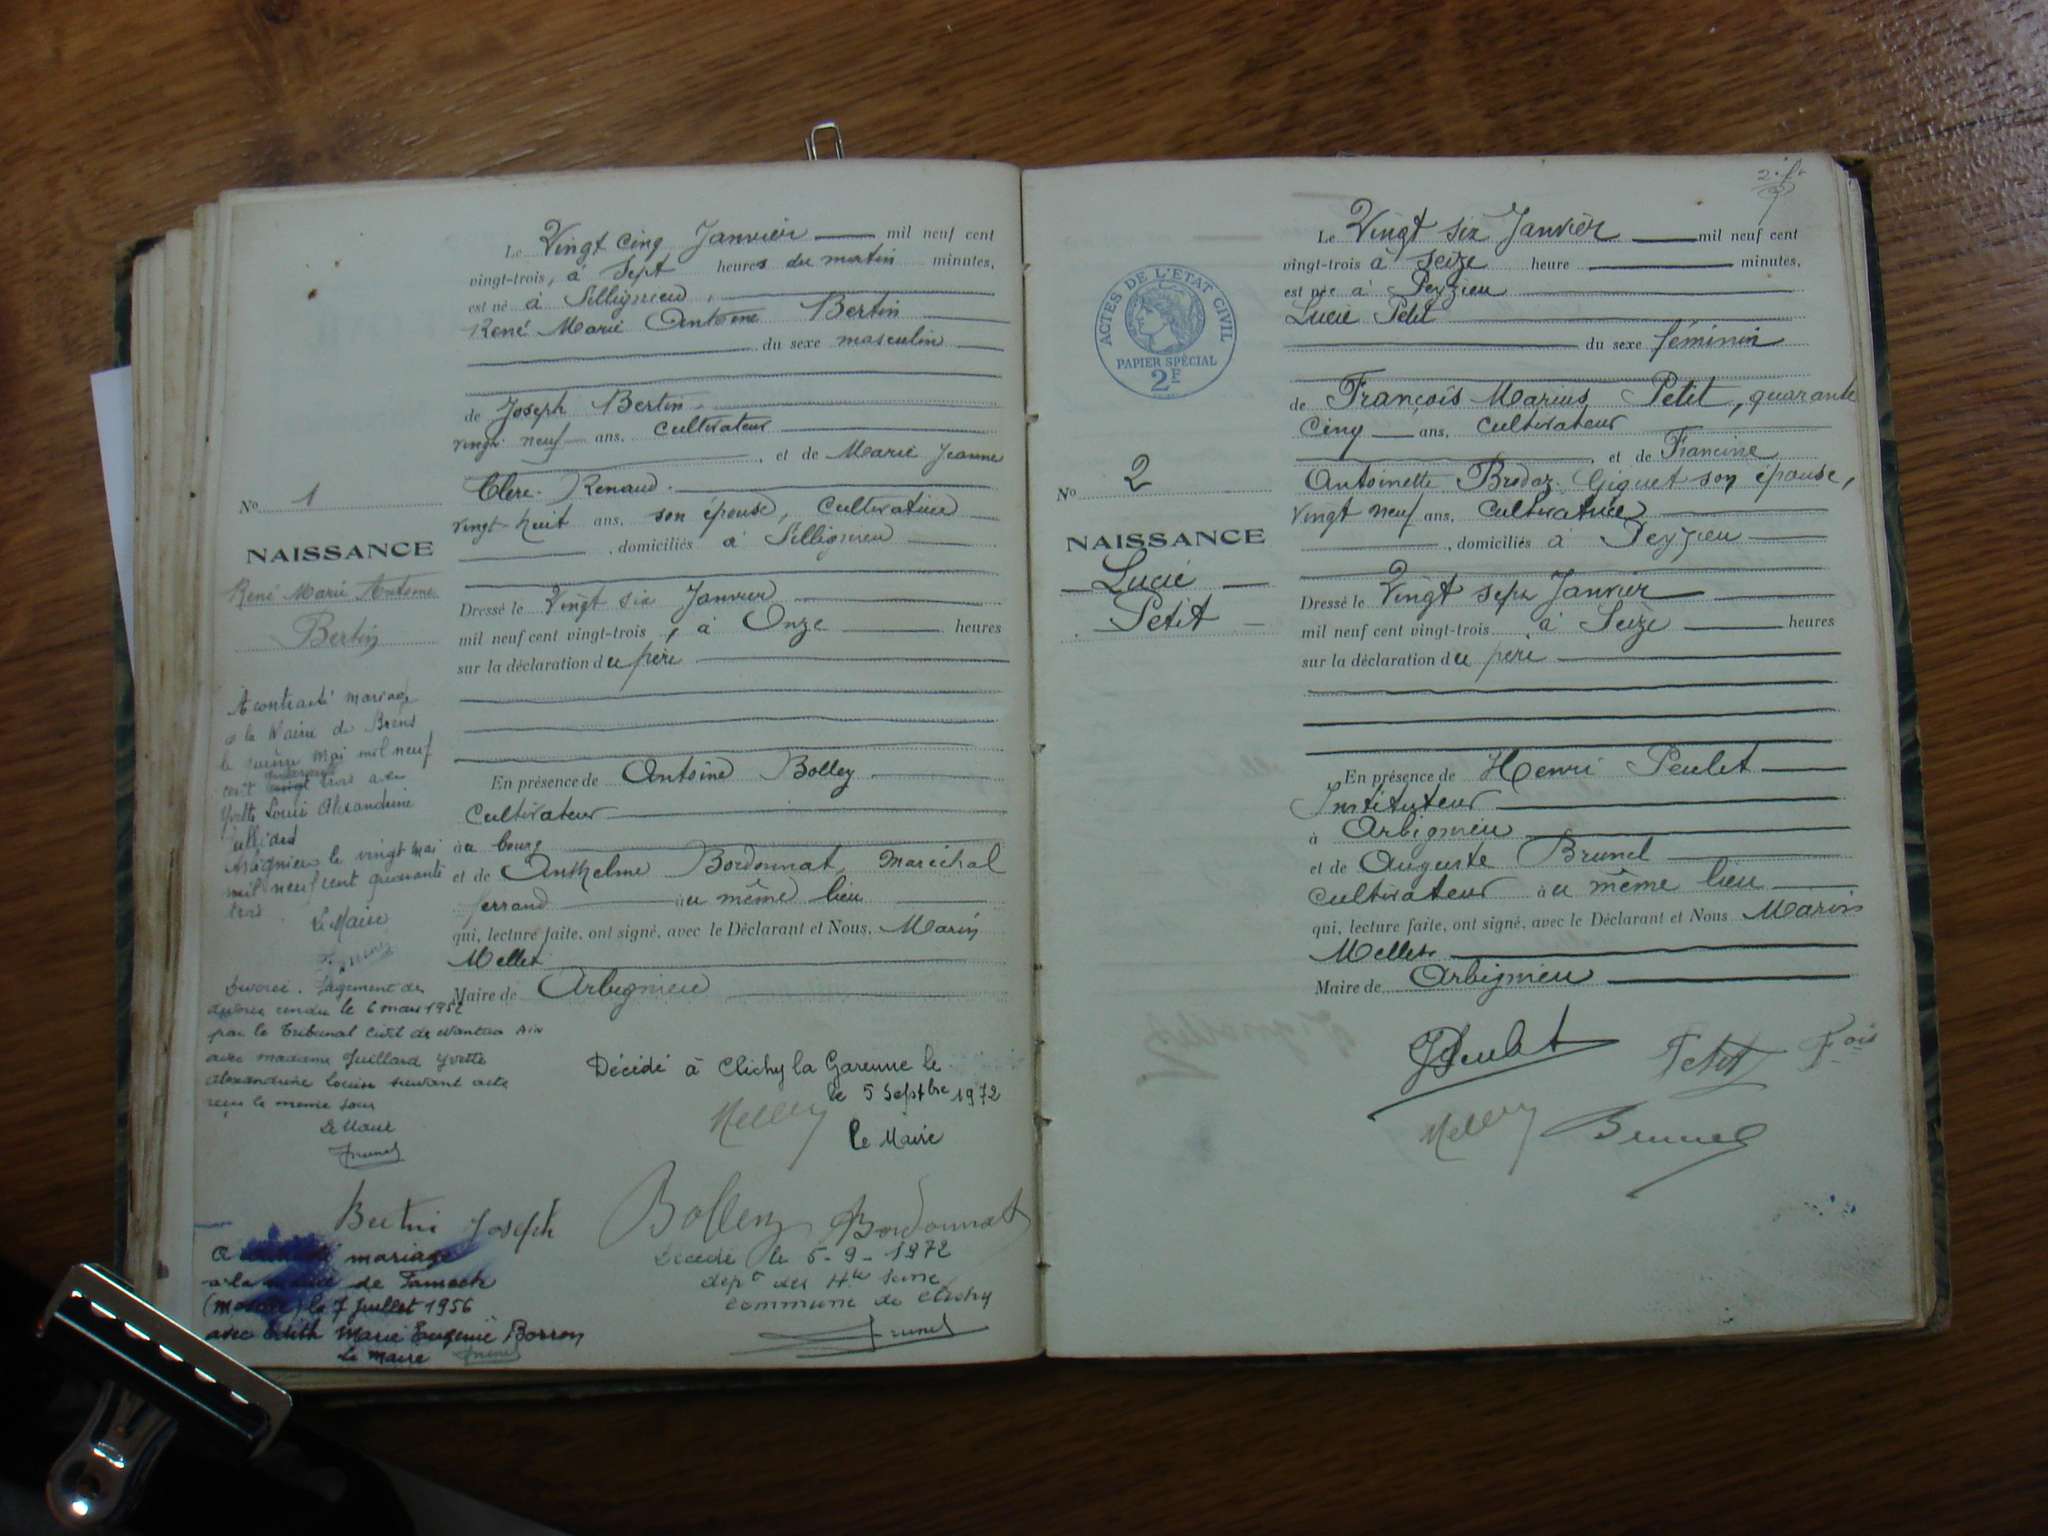 Le Vingt cinq Janvier mil neuf cent
vingt-trois, à Sept heures du matin minutes,
est né à Sillignieu,
René Marie Antoine Bertin
du sexe masculin
de Joseph Bertin
vingt neuf ans, cultivateur
, et de Marie Jeanne
Clerc-Renaud
vingt huit ans, son épouse, Cultivatrice
, domiciliés à Sillignieu
Dressé le Vingt six Janvier
mil neuf cent vingt-trois, à Onze heures
sur la déclaration du père
En présence de Antoine Bolley
Cultivateur
au bourg
et de Anthelme Bordonnat, maréchal
ferrand au même lieu
qui, lecture faite, ont signé, avec le Déclarant et Nous, Marin
Mellet
Maire de Arbignieu
No 1
NAISSANCE
René Marie Antoine
Bertin
A contracté mariage
à la Mairie de Brens
le mai mil neuf
cent quarante trois avec
Yvette Louise Alexandrine
Arbignieu le vingt mai
mil neuf cent quarante
trois
Le Maire
Divorcé. Jugement de
divorce rendu le 6 mars 1952
par le Tribunal Civil de
avec madame Juillard Yvette
Alexandrine Louise suivant acte
reçu le meme jour
Le Maire
Brunel
Décédé à Clichy la Garenne le
le 5 Septbre 1972
Le Maire
Mellet
Bertin Joseph
Bolley
Bordonnat
A contracté mariage
a la mairie de
le 7 Juillet 1956
avec Edith Marie Eugenie Borron
Le maire Brunel
Décédé le 5-9-1972
dept des Hts Seine
commune de Clichy
Brunel
ACTES DE L'ETAT CIVIL
PAPIER SPÉCIAL
2F
Le Vingt six Janvier mil neuf cent
vingt-trois à Seize heure minutes,
est née à Peyzieu
Lucie Petit
du sexe féminin
de François Marius Petit, quarante
Cinq ans, Cultivateur
, et de Francine
Antoinette Brodaz-Giguet son épouse,
Vingt neuf ans, Cultivatrice
, domiciliés à Peyzieu
Dressé le Vingt sept Janvier
mil neuf cent vingt-trois, à Seize heures
sur la déclaration du père
En présence de Henri Peulet
Instituteur
à Arbignieu
et de Auguste Brunel
Cultivateur au même lieu
qui, lecture faite, ont signé, avec le Déclarant et Nous Marin
Mellet
Maire de Arbignieu
No 2
NAISSANCE
Lucie
Petit
Peulet
Petit Fois
Mellet
Brunel